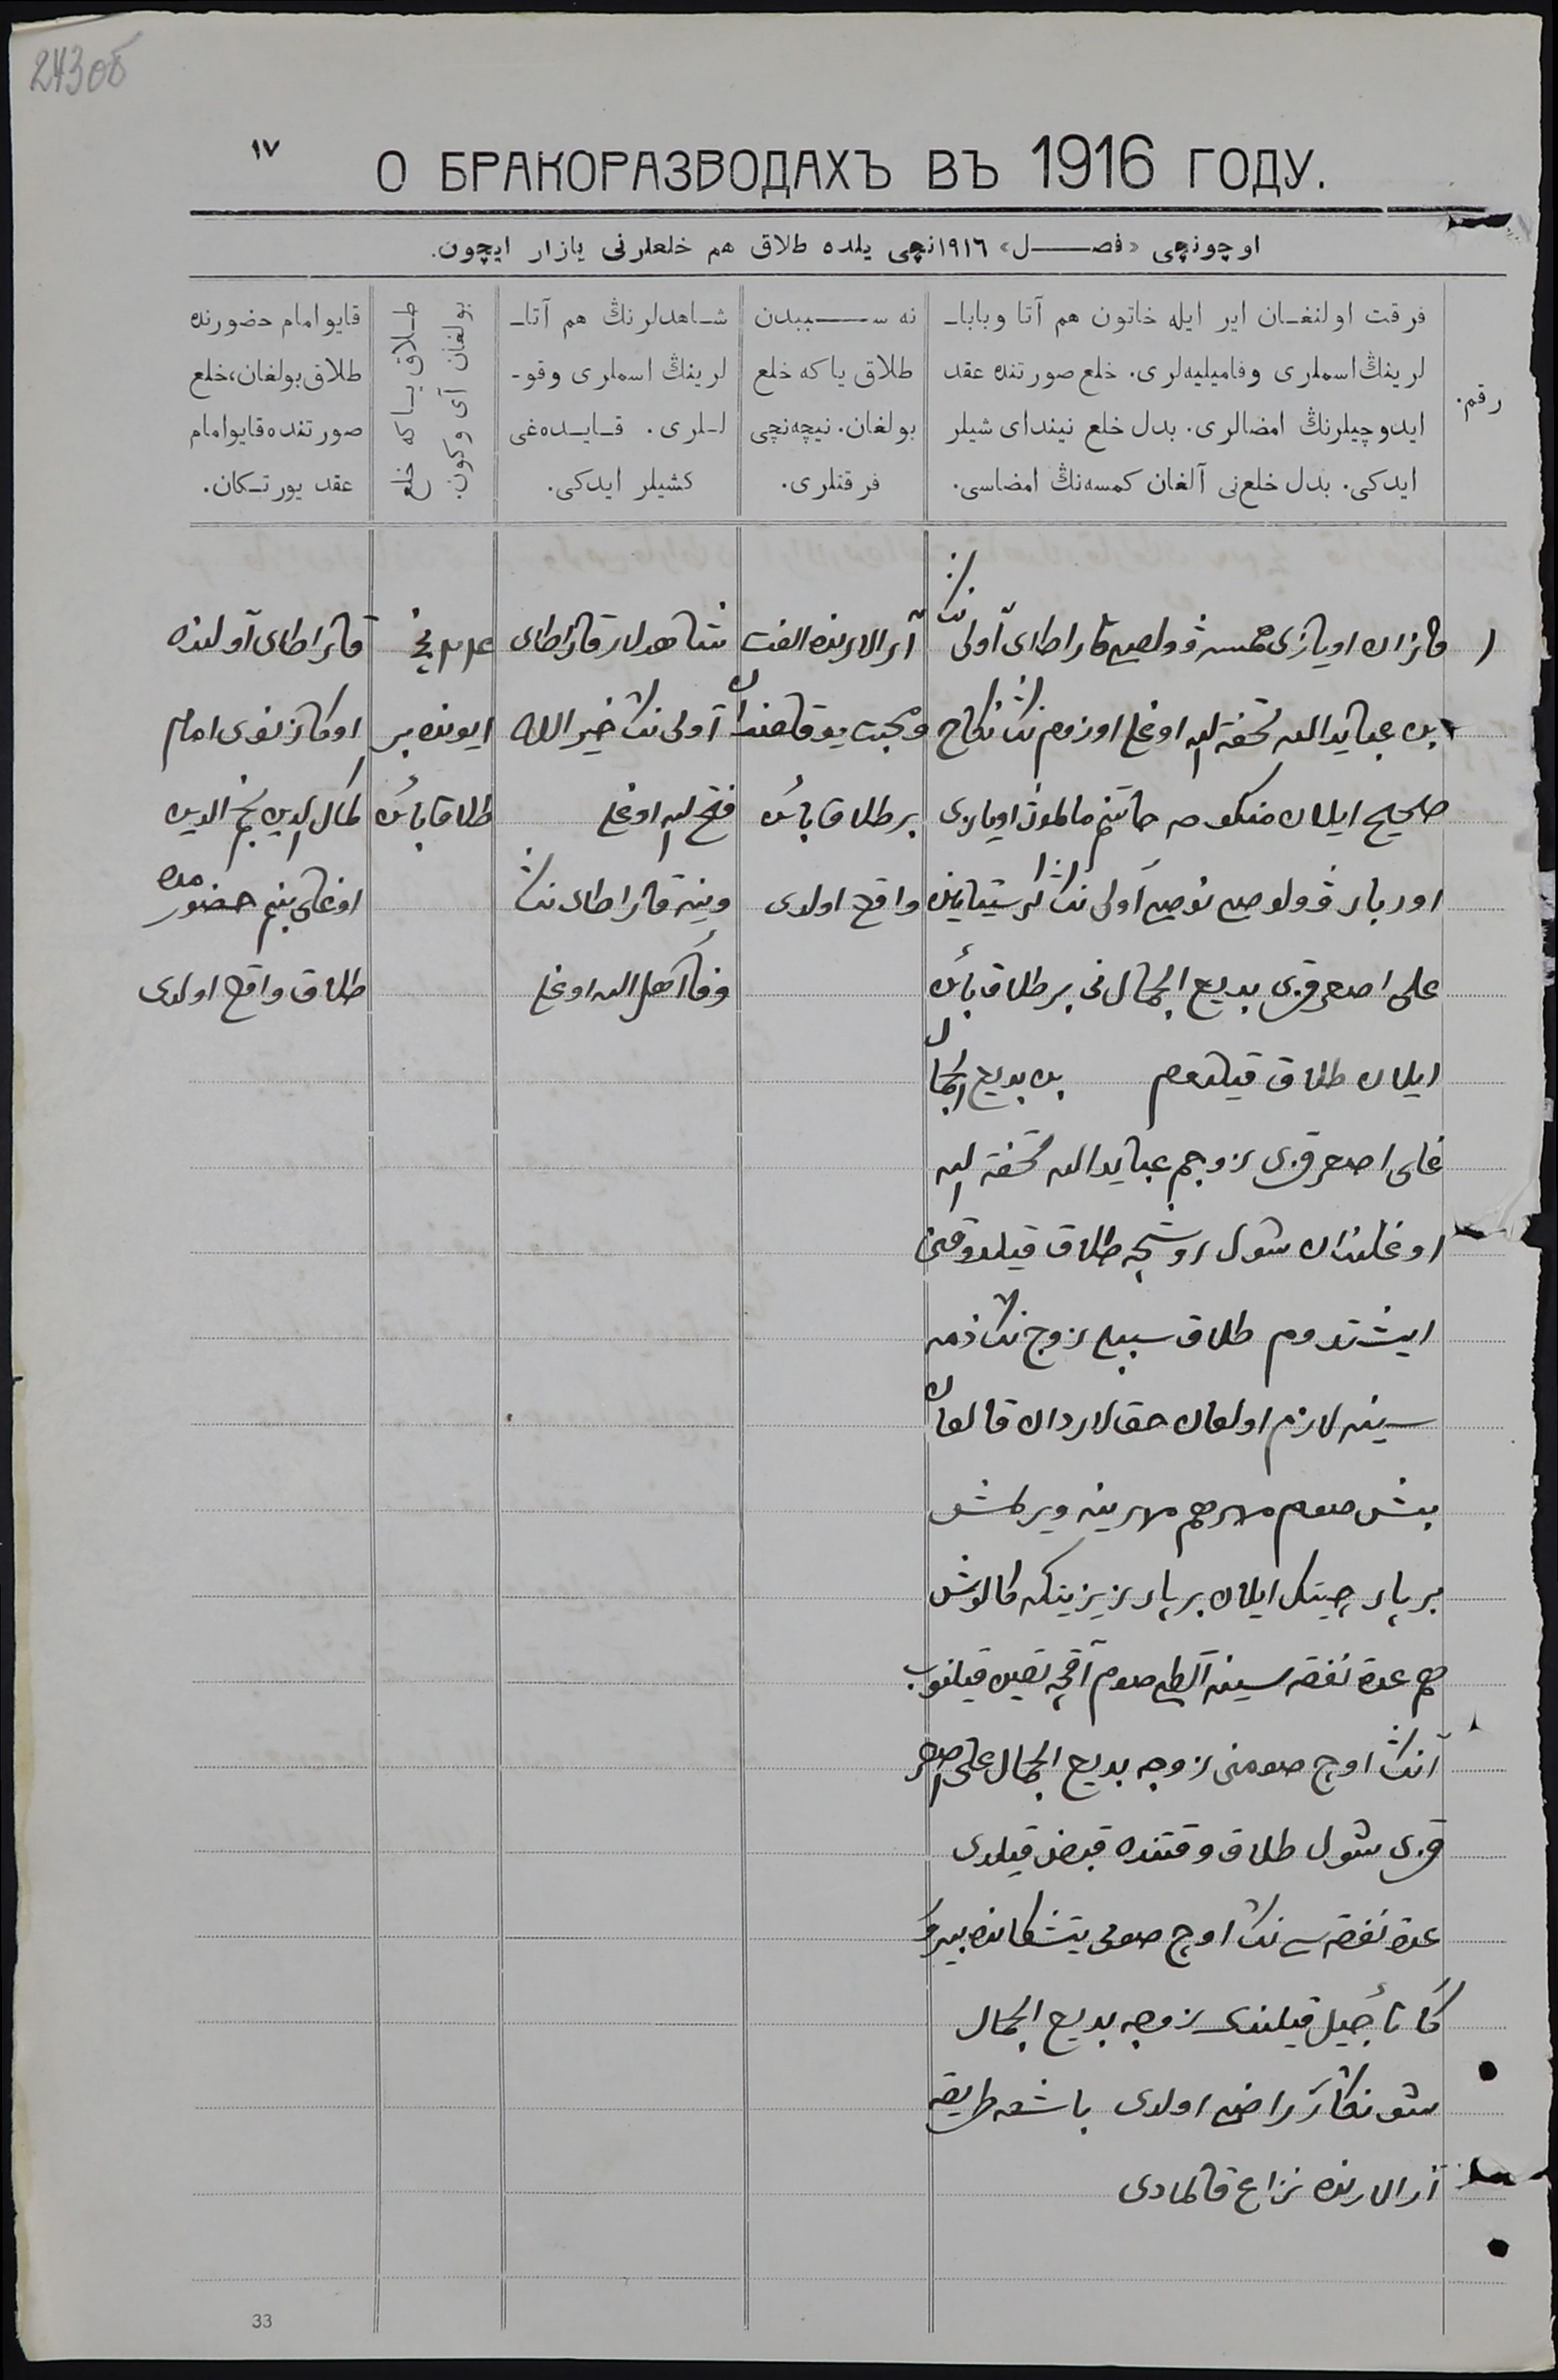 243об
١٧
О БРАКОРАЗВОДАХЪ ВЪ 1916 ГОДУ.
اوچونچی «فصـــل» ١٩١٦نچی یلده طلاق هم خلعلرنی یازار ایچون.
رقم.
فرقت اولنغـان ایر ایله خاتون هم آتا وبابا۔
لرینڭ اسملری وفامیلیه‌لری. خلع صورتنده عقد
ایدوچیلرنڭ امضالری. بدل خلع نیندای شیلر
ایدکی. بدل خلع‌نی آلغان کمسه‌نڭ امضاسی.
نه ســـببدن
طلاق یاکه خلع
بولغان. نیچه‌نچی
فرقتلری.
شـاهدلرنڭ هم آتا۔
لرینڭ اسملری وقو۔
لـلری. قـایـده‌غی
کشیلر ایدکی.
طـلاق یـا که خلع
بولغان آی و کون.
قایو امام حضورنده
طلاق بولغان، خلع
صورتنده قایو امام
عقد یورتـکان.
١
قازان اویازی وولصی قاراطای آولی نڭ
بن عبایدالله تحفة الله اوغلی اوزوم نڭ نکاح
صحیح ایلان منکوحه
اوربار وولوصی آولی نڭ
علی اصغر قزی بدیع الجمال نی بر طلاق بائن
ایلان طلاق قیلدوم بن بدیع الجمال
علی اصغر قزی زوجم عبایدالله تحفة الله
اوغلندان شول روشچه طلاق قیلدوقنی
ایشتدوم طلاق سببلی زوج نڭ ذمه
سینه لازم اولغان حق لاردان قالغان
بیش صوم مهر هم مهرینه ویرلمش
بر پار چیتک ایلان بر پار ریزینکه کالوش
هم عدة نفقه سینه آلطی صوم آقچه تعیین قیلنوب
آنڭ اوچ صومنی زوجه بدیع الجمال علی اصغر
قزی شول طلاق وقتنده قبض قیلدی
عدة نفقه سی نڭ اوچ صومی یتشکانده بیرو
کا تأجیل قیلندی زوجه بدیع الجمال
شونکار راضی اولدی باشقه طریقه
آرالارنده نزاع قالمادی
آرالارنده الفت
ومحبت یوقلقندان
بر طلاق بائن
واقع اولدی
شاهدلار قاراطای
آولی نڭ خیرالله
فتح الله اوغلی
وینه قاراطای نڭ
اوغلی
ایونده بر
طلاق بائن
قاراطای آولنده
اوکازنوی امام
کمال الدین نجم الدین
اوغلی بنم حضورمده
طلاق واقع اولدی
33